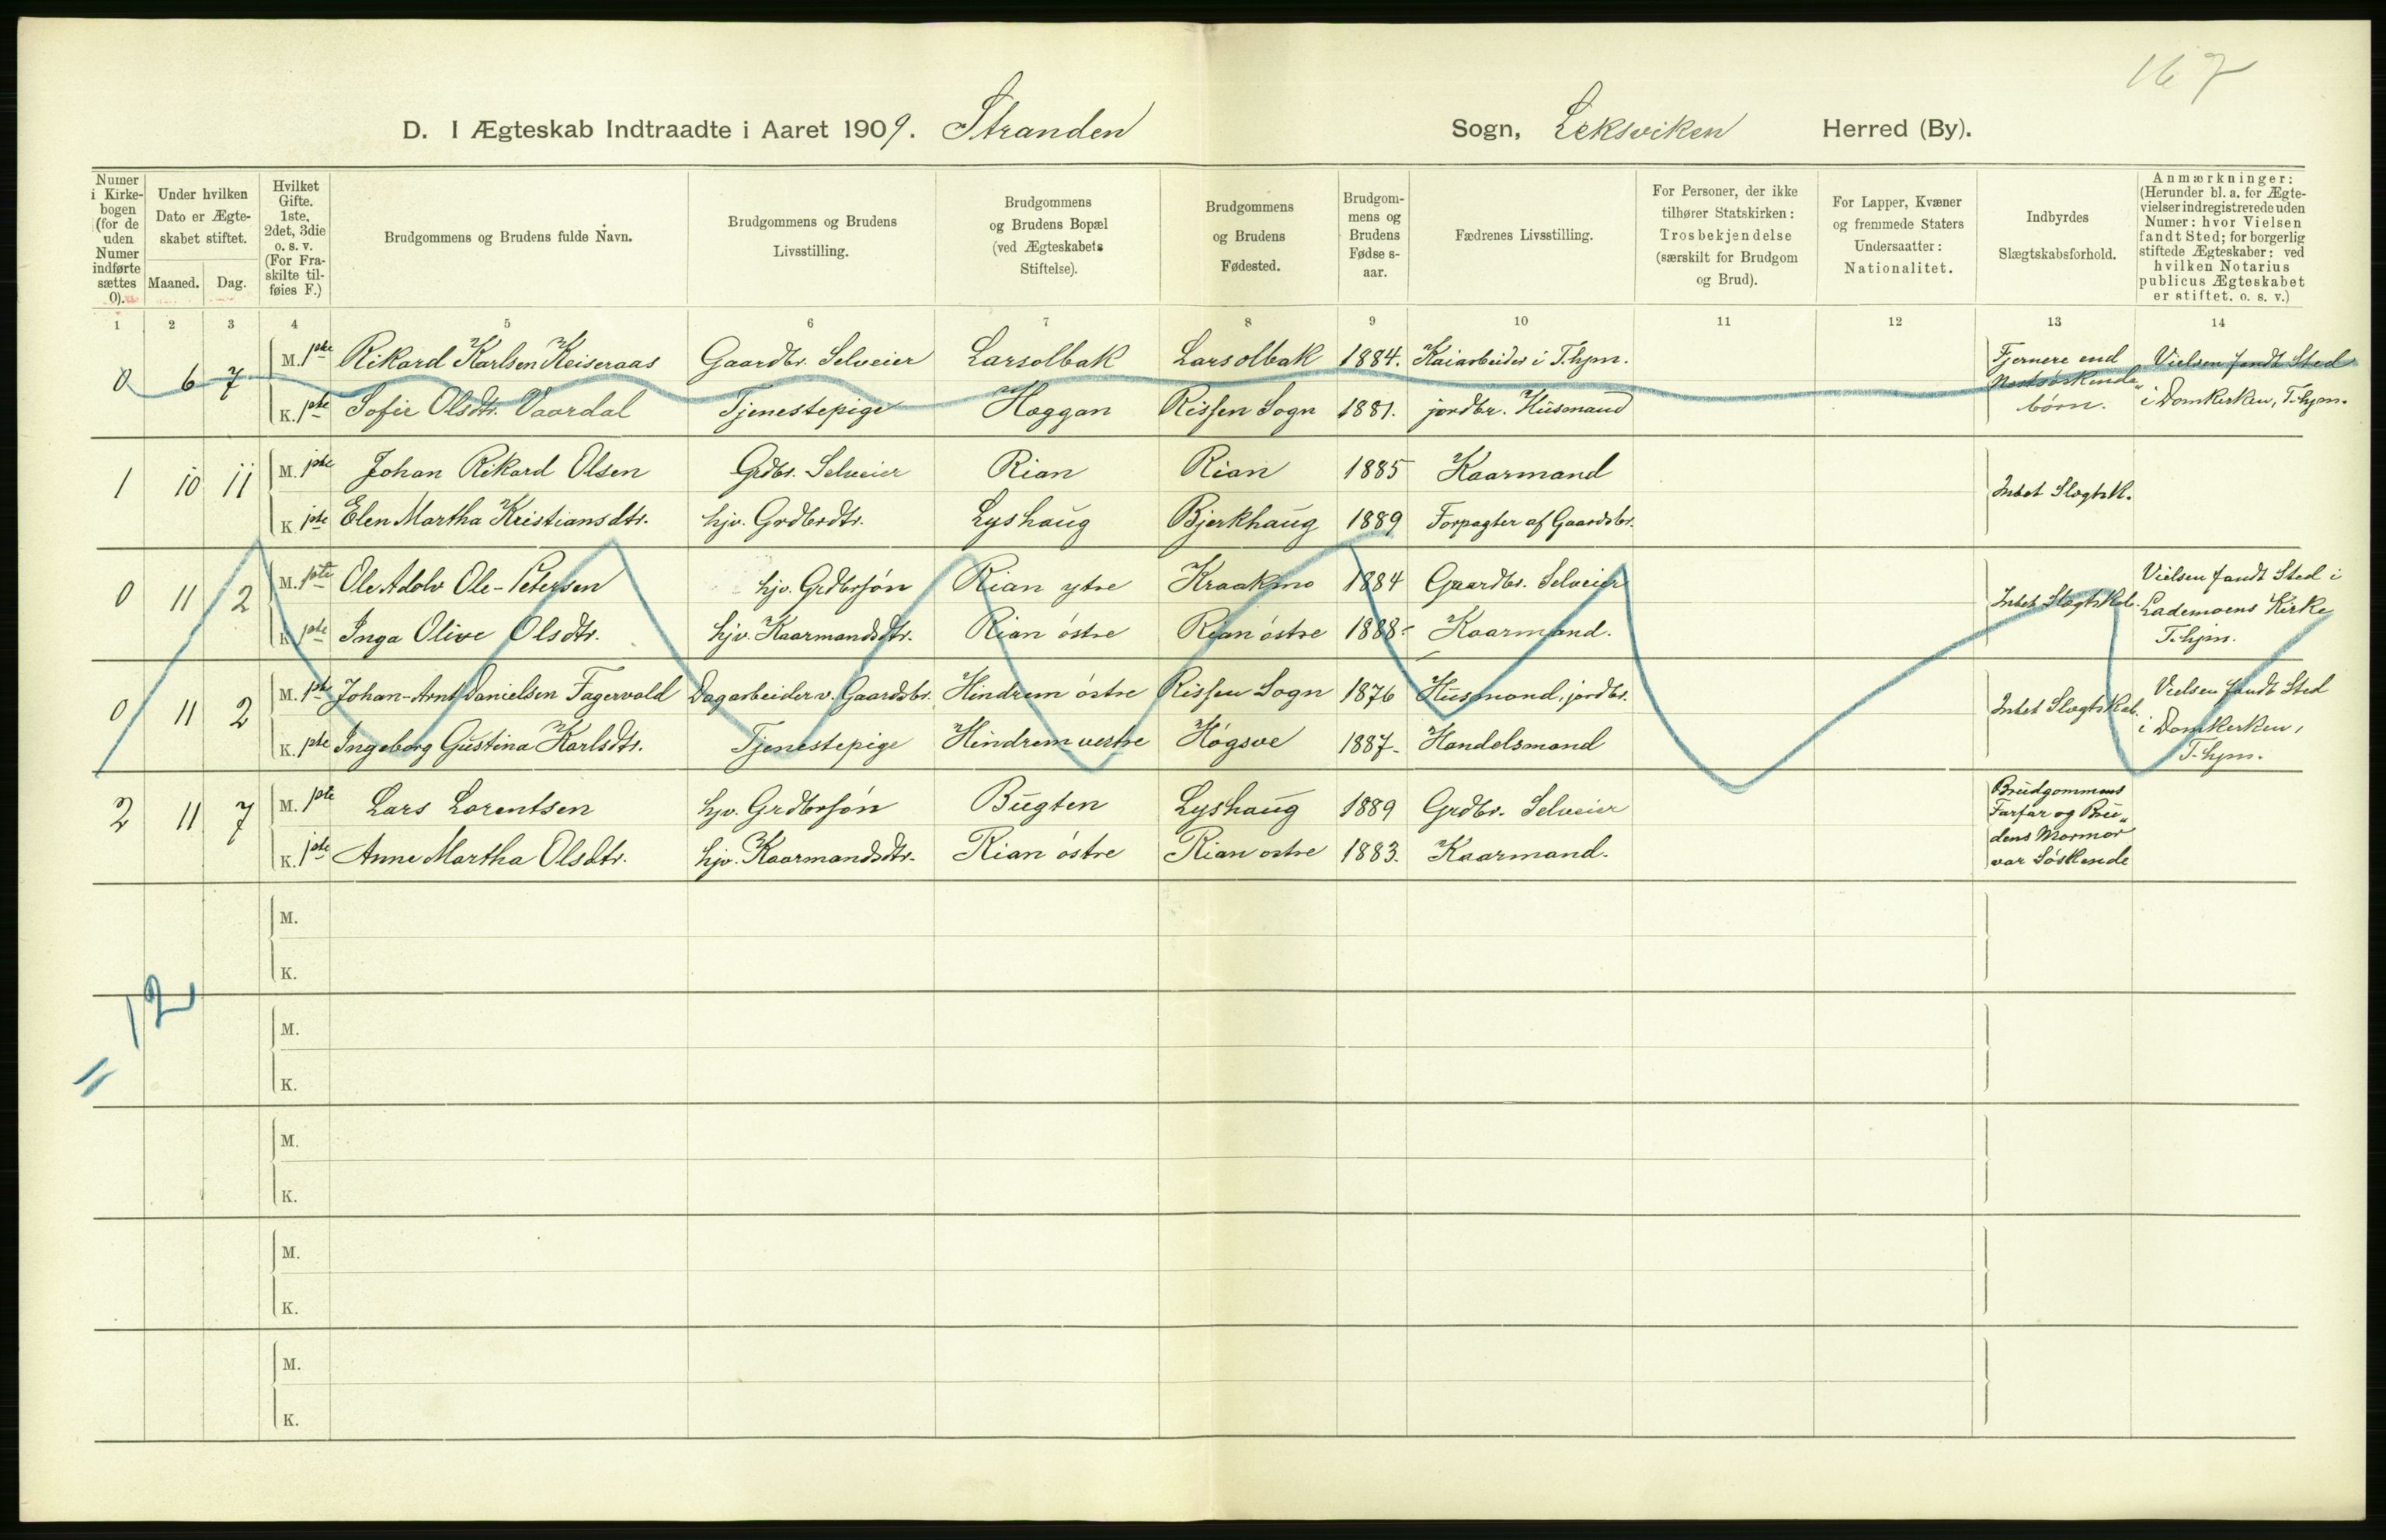 167
D. I Ægteskab Indtraadte i Aaret 1909. Stranden Sogn, Leksviken Herred (By).
Numer i Kirke-bogen (for de uden Numer indførte sættes 0).
Under hvilken Dato er Ægte-skabet stiftet.
Maaned. Dag.
Hvilket Gifte. 1ste, 2det, 3die o. s. v. (For Fra-skilte til-føies F.)
Brudgommens og Brudens fulde Navn.
Brudgommens og Brudens Livsstilling.
Brudgommens og Brudens Bopæl (ved Ægteskabets Stiftelse).
Brudgommens og Brudens Fødested.
Brudgom-mens og Brudens Fødse s-aar.
Fædrenes Livsstilling.
For Personer, der ikke tilhører Statskirken: Trosbekjendelse (særskilt for Brudgom og Brud).
For Lapper, Kvæner og fremmede Staters Undersaatter: Nationalitet.
Indbyrdes Slægtskabsforhold.
Anmærkninger: (Herunder bl. a. for Ægte-vielser indregistrerede uden Numer: hvor Vielsen fandt Sted; for borgerlig stiftede Ægteskaber: ved hvilken Notarius publicus Ægteskabet er stiftet. o. s. v.)
1 2 3 4 5 6 7 8 9 10 11 12 13 14
0 6 7
M. 1ste Rikard Karlsen Keiseraas Gaardbr. Selveier Larsolbak Larsolbak 1884. Kaiarbeider i T.hjm.
K. 1ste Sofie Olsdtr. Vaardal Tjenestepige Haggan Rissen Sogn 1881. jordbr. Husmand
Fjernere end
Næstsøskende„
børn.
Vielsen fandt Sted
i Domkirken, T.hjm.
1 10 11
M. 1ste Johan Rikard Olsen Grdbr. Selveier Rian Rian 1885 Kaarmand
K 1ste Elen Martha Kristiansdtr. hjv. Grdbrdtr. Lyshaug Bjerkhaug 1889 Forpagter af Gaardsbr.
Intet Slægtsk.
0 11 2
M. 1ste Ole Adolv Ole-Petersen hjv. Grdbrsøn Rian ytre Kraakmo 1884 Gaardbr. Selveier
K 1ste Inga Olive Olsdtr. hjv. Kaarmandsdtr. Rian östre Rian östre 1888- Kaarmand.
Intet Slægtskab.
Vielsen fandt Sted i
Lademoens Kirke
T.hjm.
0 11 2
M. 1ste Johan-Arnt Danielsen Fagervold Dagarbeider v. Gaardsbr. Hindrem östre Rissen Sogn 1876 Husmand, jordbr.
K. 1ste Ingeborg Gustina Karlsdtr. Tjenestepige Hindrem vestre Høgsve 1887- Handelsmand
Intet Slægtskab.
Vielsen fandt Sted
i Domkirken,
T.hjm.
2 11 7
M. 1ste Lars Lorentsen hjv. Grdbrsøn Bugten Lyshaug 1889 Grdbr. Selveier
K. 1ste Anne Martha Olsdtr. hjv. Kaarmandsdtr. Rian östre Rian östre 1883. Kaarmand.
Brudgommens
Farfar og Bru„
dens Mormor
var Søskende
M.
K.
12
M.
K.
M.
K.
M.
K.
M.
K.